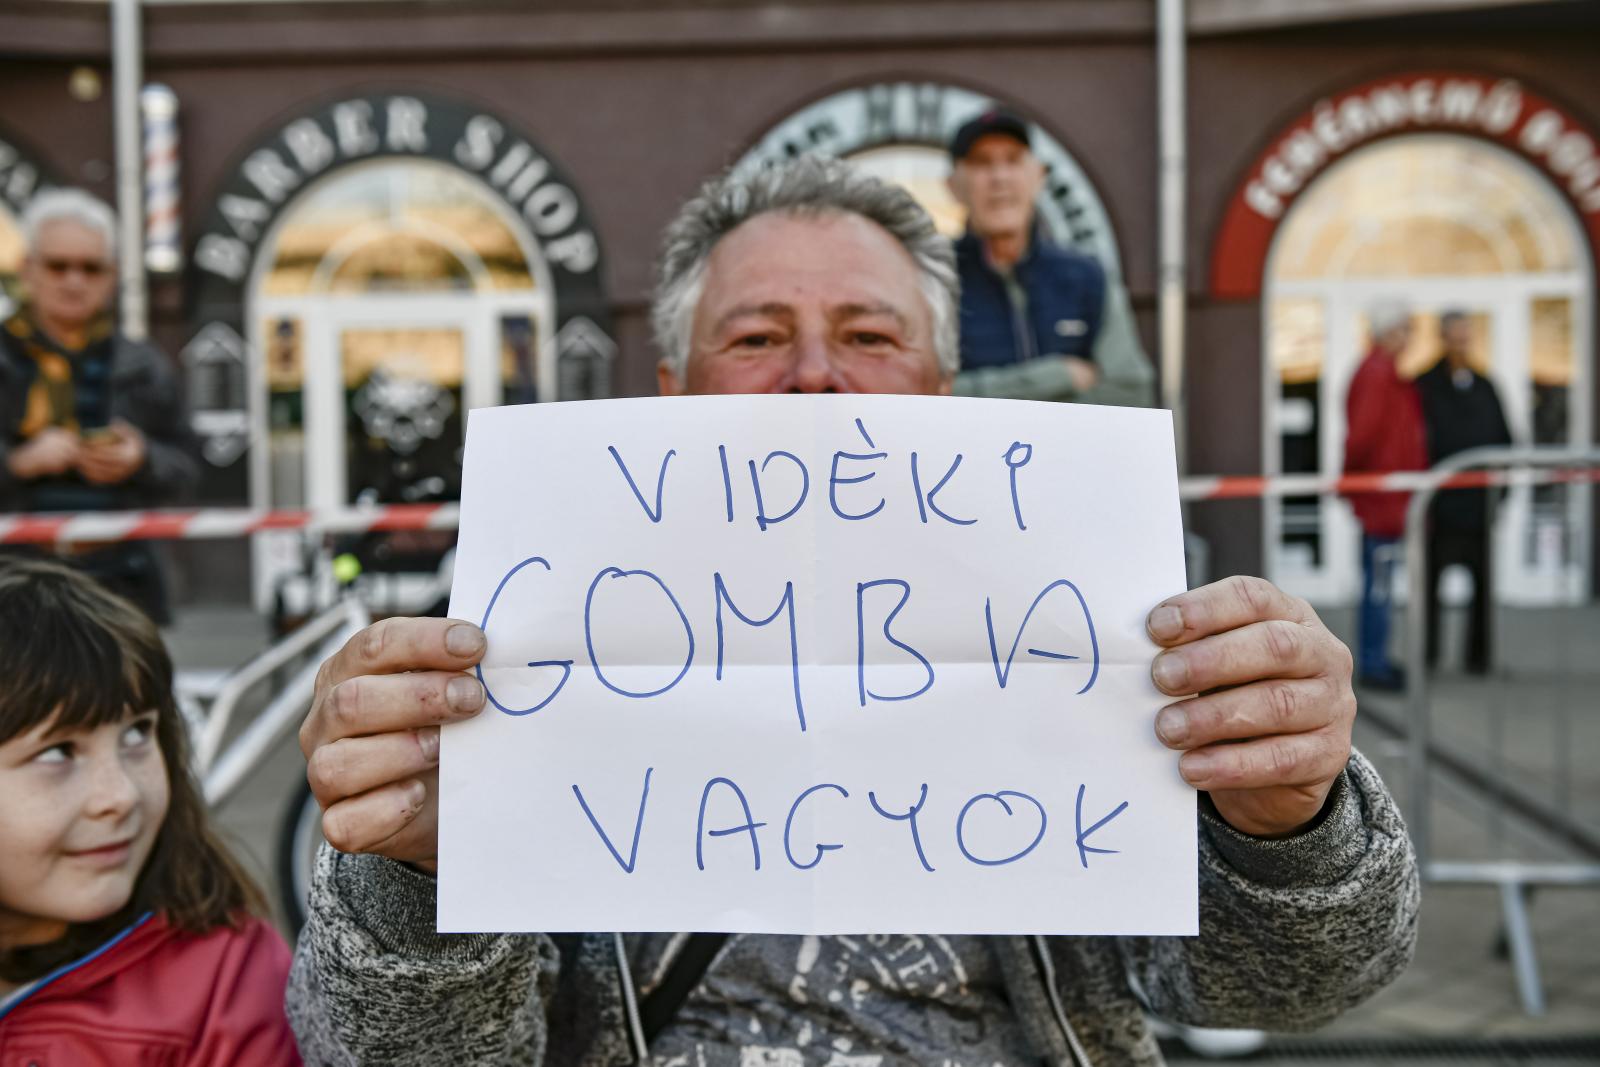 BARBER SHOP
FEHÉRNEMŰ BOLT
VIDÈKI
GOMBA
VAGYOK